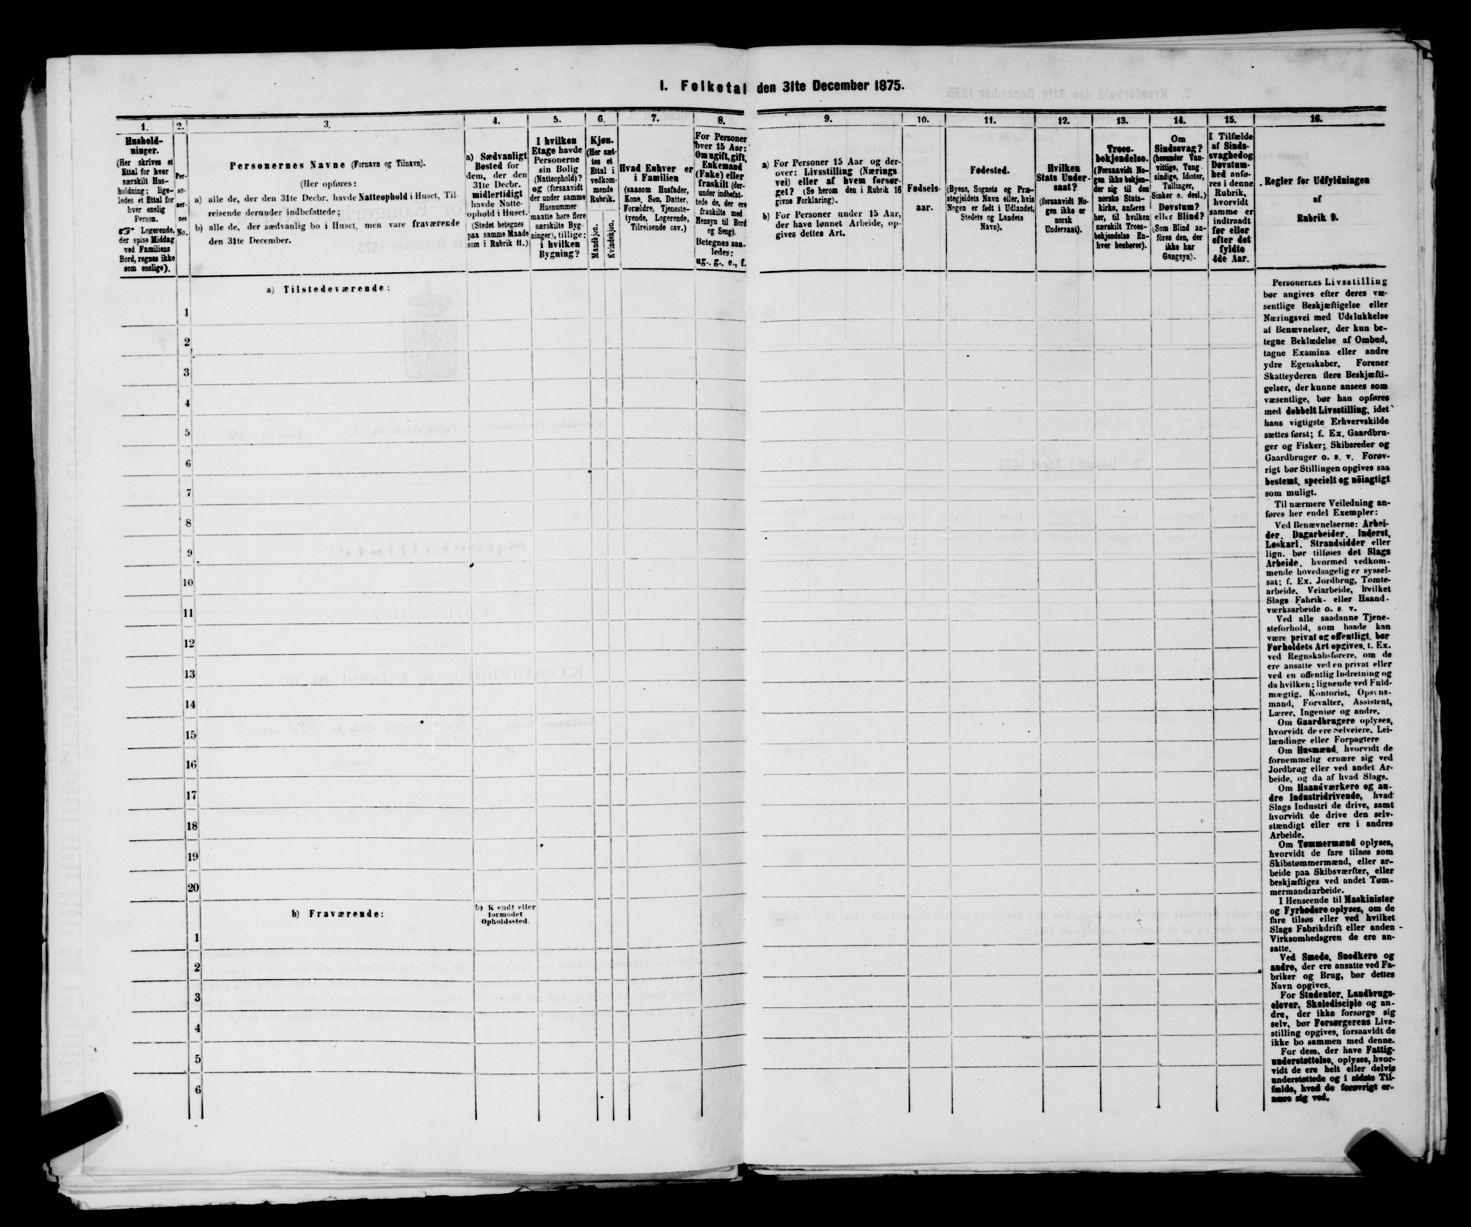 I. Folketal den 31te December 1875.
1.
Hushold-
ninger.
(Her skrives et
Ettal for hver
særskilt Hus-
holdning; lige-
ledes et Ettal for
hver enslig
Person.
☞ Logerende,
der spise Middag
ved Familiens
Bord, regnes ikke
som enslige).
2.
Per-
so-
ner-
nes
No.
3.
Personernes Navne (Fornavn og Tilnavn).
(Her opføres:
a) alle de, der den 31te Decbr. havde Natteophold i Huset, Til-
reisende derunder indbefattede;
b) alle de, der sædvanlig bo i Huset, men vare fraværende
den 31te December.
4.
a) Sædvanligt
Bosted for
dem, der den
31te Decbr.
midlertidigt
havde Natte-
ophold i Huset.
(Stedet betegnes
paa samme Maade
som i Rubrik 11.)
5.
I hvilken
Etage havde
Personerne
sin Bolig
(Natteophold)?
og (forsaavidt
der under samme
Husnummer
maatte høre flere
særskilte Byg-
ninger), tillige:
i hvilken
Bygning?
6.
Kjøn.
(Her sæt-
tes et
Ettal i
vedkom-
mende
Rubrik.
Mandkjøn.
Kvindekjøn.
7.
Hvad Enhver er
i Familien
(saasom Husfader,
Kone, Søn, Datter,
Forældre, Tjeneste-
tyende, Logerende,
Tilreisende osv.)
8.
For Personer
over 15 Aar:
Om ugift, gift,
Enkemand
(Enke) eller
fraskilt (der-
under indbefat-
tede de, der ere
fraskilte med
Hensyn til Bord
og Seng).
Betegnes saa-
ledes:
ug., g., e., f.
9.
a) For Personer 15 Aar og der-
over: Livsstilling (Nærings-
vei) eller af hvem forsør-
get? (Se herom den i Rubrik 16
givne Forklaring).
b) For Personer under 15 Aar,
der have lønnet Arbeide, op-
gives dettes Art.
10.
Fødsels-
aar.
11.
Fødested.
(Byens, Sognets og Præ-
stegjeldets Navn eller, hvis
Nogen er født i Udlandet,
Stedets og Landets
Navn).
12.
Hvilken
Stats Under-
saat?
(forsaavidt No-
gen ikke er
norsk
Undersaat).
13.
Troes-
bekjendelse.
(Forsaavidt No-
gen ikke bekjen-
der sig til den
norske Stats-
kirke, anføres
her, til hvilken
særskilt Troes-
bekjendelse En-
hver henhører).
14.
Om
Sindssvag?
(herunder Van-
vittige, Tung-
sindige, Idioter,
Tullinger,
Sinker o. desl.)
Døvstum?
eller Blind?
(Som Blind an-
føres den, der
ikke har
Gangsyn).
15.
I Tilfælde
af Sinds-
svaghed og
Døvstum-
hed anfø-
res i denne
Rubrik,
hvorvidt
samme er
indtraadt
før eller
efter det
fyldte
4de Aar.
16.
Regler for Udfyldningen
af
Rubrik 9.
a) Tilstedeværende:
1
2
3
4
5
6
7
8
9
10
11
12
13
14
15
16
17
18
19
20
b) Fraværende:
b) Kjendt eller
formodet
Opholdssted.
1
2
3
4
5
6
Personernes Livsstilling
bør angives efter deres væ-
sentlige Beskjæftigelse eller
Næringsvei med Udelukkelse
af Benævnelser, der kun be-
tegne Beklædelse af Ombud,
tagne Examina eller andre
ydre Egenskaber. Forener
Skatteyderen flere Beskjæfti-
gelser, der kunne ansees som
væsentlige, bør han opføres
med dobbelt Livsstilling, idet
hans vigtigste Erhvervskilde
sættes først; f. Ex. Gaardbru-
ger og Fisker; Skibsreder og
Gaardbruger o. s. v. Forøv-
rigt bør Stillingen opgives saa
bestemt, specielt og nøiagtigt
som muligt.
Til nærmere Veiledning an-
føres her endel Exempler:
Ved Benævnelserne: Arbei-
der, Dagarbeider, Inderst,
Løskarl, Strandsidder eller
lign. bør tilføies det Slags
Arbeide, hvormed vedkom-
mende hovedsagelig er syssel-
sat; f. Ex. Jordbrug, Tomte-
arbeide, Veiarbeide, hvilket
Slags Fabrik- eller Haand-
værksarbeide o. s. v.
Ved alle saadanne Tjene-
steforhold, som baade kan
være privat og offentligt, bør
Forholdets Art opgives, f. Ex.
ved Regnskabsførere, om de
ere ansatte ved en privat eller
ved en offentlig Indretning og
da hvilken; lignende ved Fuld-
mægtig, Kontorist, Opsyns-
mand, Forvalter, Assistent,
Lærer, Ingeniør og andre.
Om Gaardbrugere oplyses,
hvorvidt de ere Selveiere, Lei-
lændinge eller Forpagtere
Om Husmænd, hvorvidt de
fornemmelig ernære sig ved
Jordbrug eller ved andet Ar-
beide, og da af hvad Slags.
Om Haandværkere og an-
dre Industridrivende, hvad
Slags Industri de drive, samt
hvorvidt de drive den selv-
stændigt eller ere i andres
Arbeide.
Om Tømmermænd oplyses,
hvorvidt de fare tilsøs som
Skibstømmermænd, eller ar-
beide paa Skibsværfter, eller
beskjæftiges ved andet Tøm-
mermandsarbeide.
I Henseende til Maskinister
og Fyrbødere oplyses, om de
fare tilsøs eller ved hvilket
Slags Fabrikdrift eller anden
Virksomhedsgren de ere an-
satte.
Ved Smede, Snedkere og
andre, der ere ansatte ved Fa-
briker og Brug, bør dettes
Navn opgives.
For Studenter, Landbrugs-
elever, Skoledisciple og an-
dre, der ikke forsørge sig
selv, bør Forsørgerens Livs-
stilling opgives, forsaavidt de
ikke bo sammen med denne.
For dem, der have Fattig-
understøttelse, oplyses, hvor-
vidt de ere helt eller delvis
understøttede og i sidste Til-
fælde, hvad de forøvrigt er-
nære sig ved.